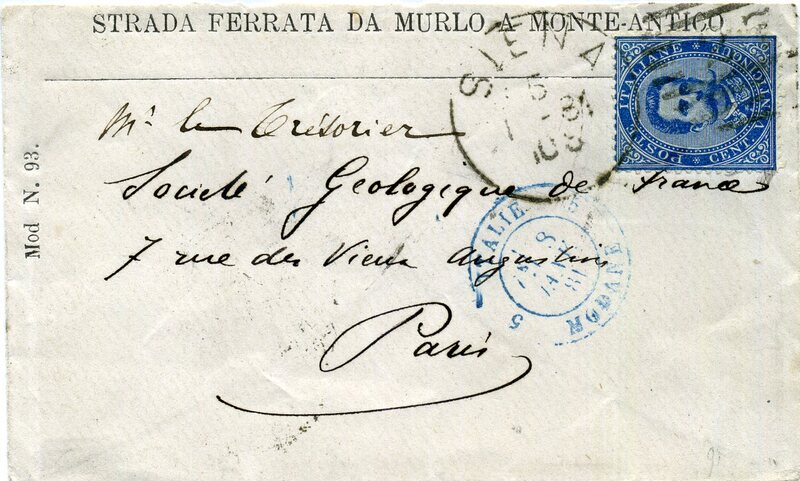 STRADA FERRATA DA MURLO A MONTE-ANTICO
SIENA
5
1 - 81
10 S
POSTE ITALIANE
CENT. VENTICINQUE
Mr le Trésorier
Société Geologique de France
7 rue des Vieux Augustins
Paris
ITALIE
MODANE
5
8
JANV
81
Mod N. 93.